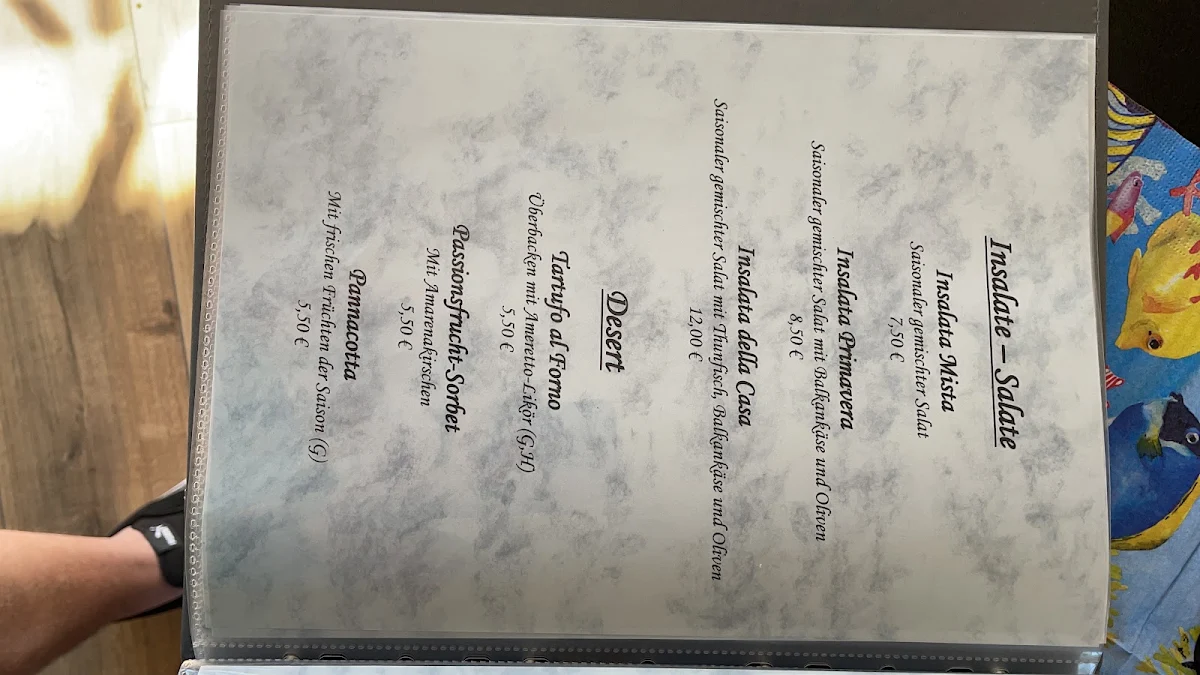 Insalate – Salate
Insalata Mista
Saisonaler gemischter Salat
7,50 €
Insalata Primavera
Saisonaler gemischter Salat mit Balkankäse und Oliven
8,50 €
Insalata della Casa
Saisonaler gemischter Salat mit Thunfisch, Balkankäse und Oliven
12,00 €
Desert
Tartufo al Forno
Überbacken mit Ameretto-Likör (G,H)
5,50 €
Passionsfrucht-Sorbet
Mit Amarenakirschen
5,50 €
Pannacotta
Mit frischen Früchten der Saison (G)
5,50 €